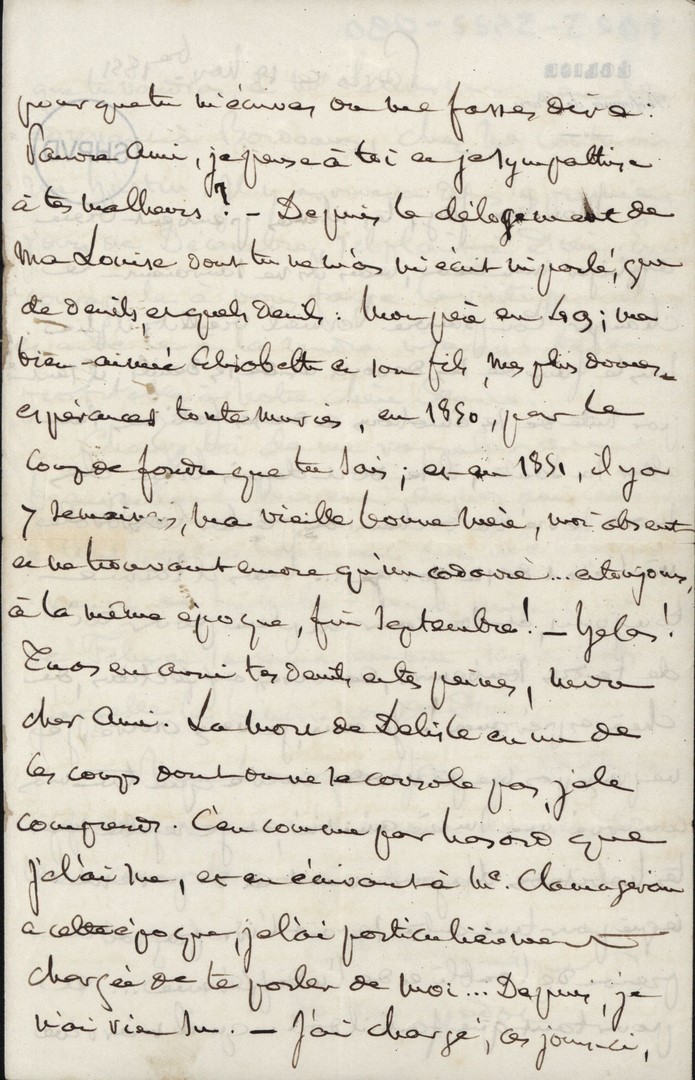 pour que tu m'écrives ou me fasses dire :
Pauvre Ami, je pense à toi et je sympathise
à tes malheurs ? – Depuis le délogement de
Ma Louise dont tu ne m'as ni écrit ni parlé, que
de deuils, et quels deuils : Mon père en 49 ; ma
bien-aimée Elisabeth et son fils, mes plus douces
espérances toute muries, en 1850, par le
coup de foudre que tu sais ; et en 1851, il y a
7 semaines, ma vieille bonne mère, moi absent
et ne trouvant encore qu'un cadavre... et toujours,
à la même époque, fin Septembre ! – Helas !
Tu as eu aussi tes deuils et tes peines, mon
cher Ami. La mort de Delisle est un de
ces coups dont on ne se console pas, je le
comprends. C'est comme par hasard que
je l'ai sue, et en écrivant à Me. Clamageran
a cette époque, je l'ai particulièrement
chargée de te parler de moi... Depuis, je
n'ai rien su. – J'ai chargé, ces jours-ci,